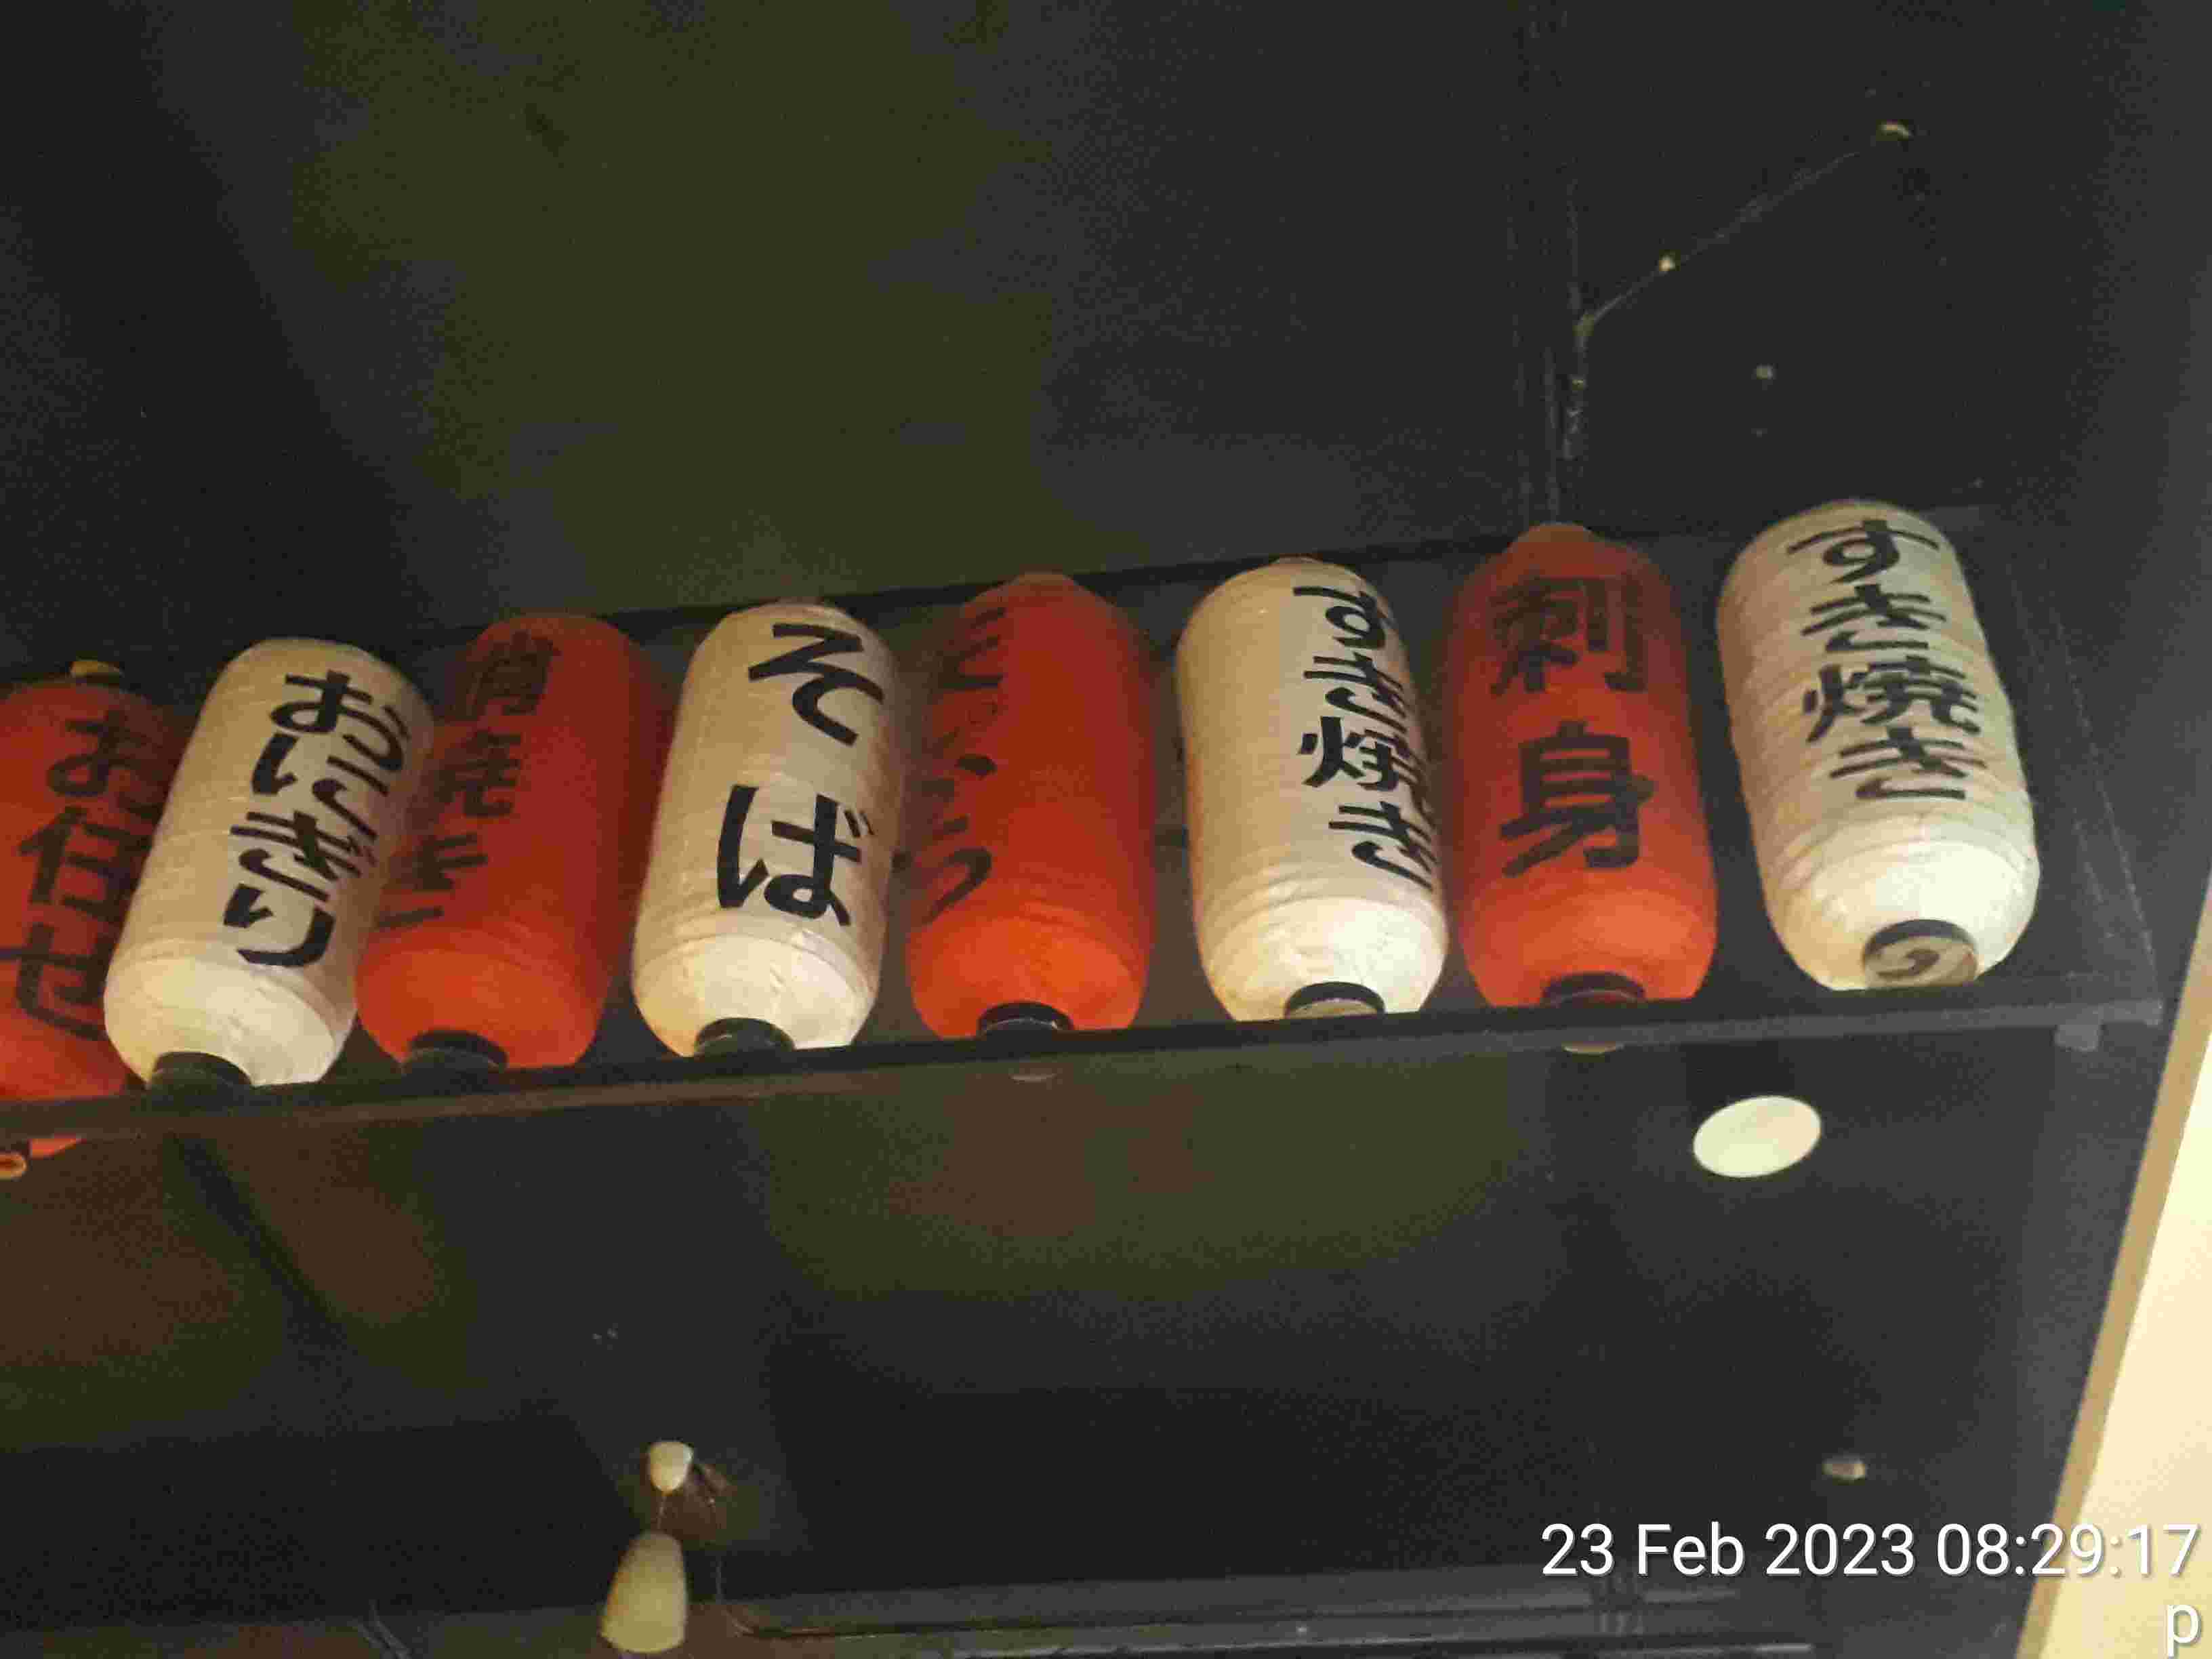 お任せ
おにぎり
そば
すき焼き
刺身
すき焼き
23 Feb 2023 08:29:17
p